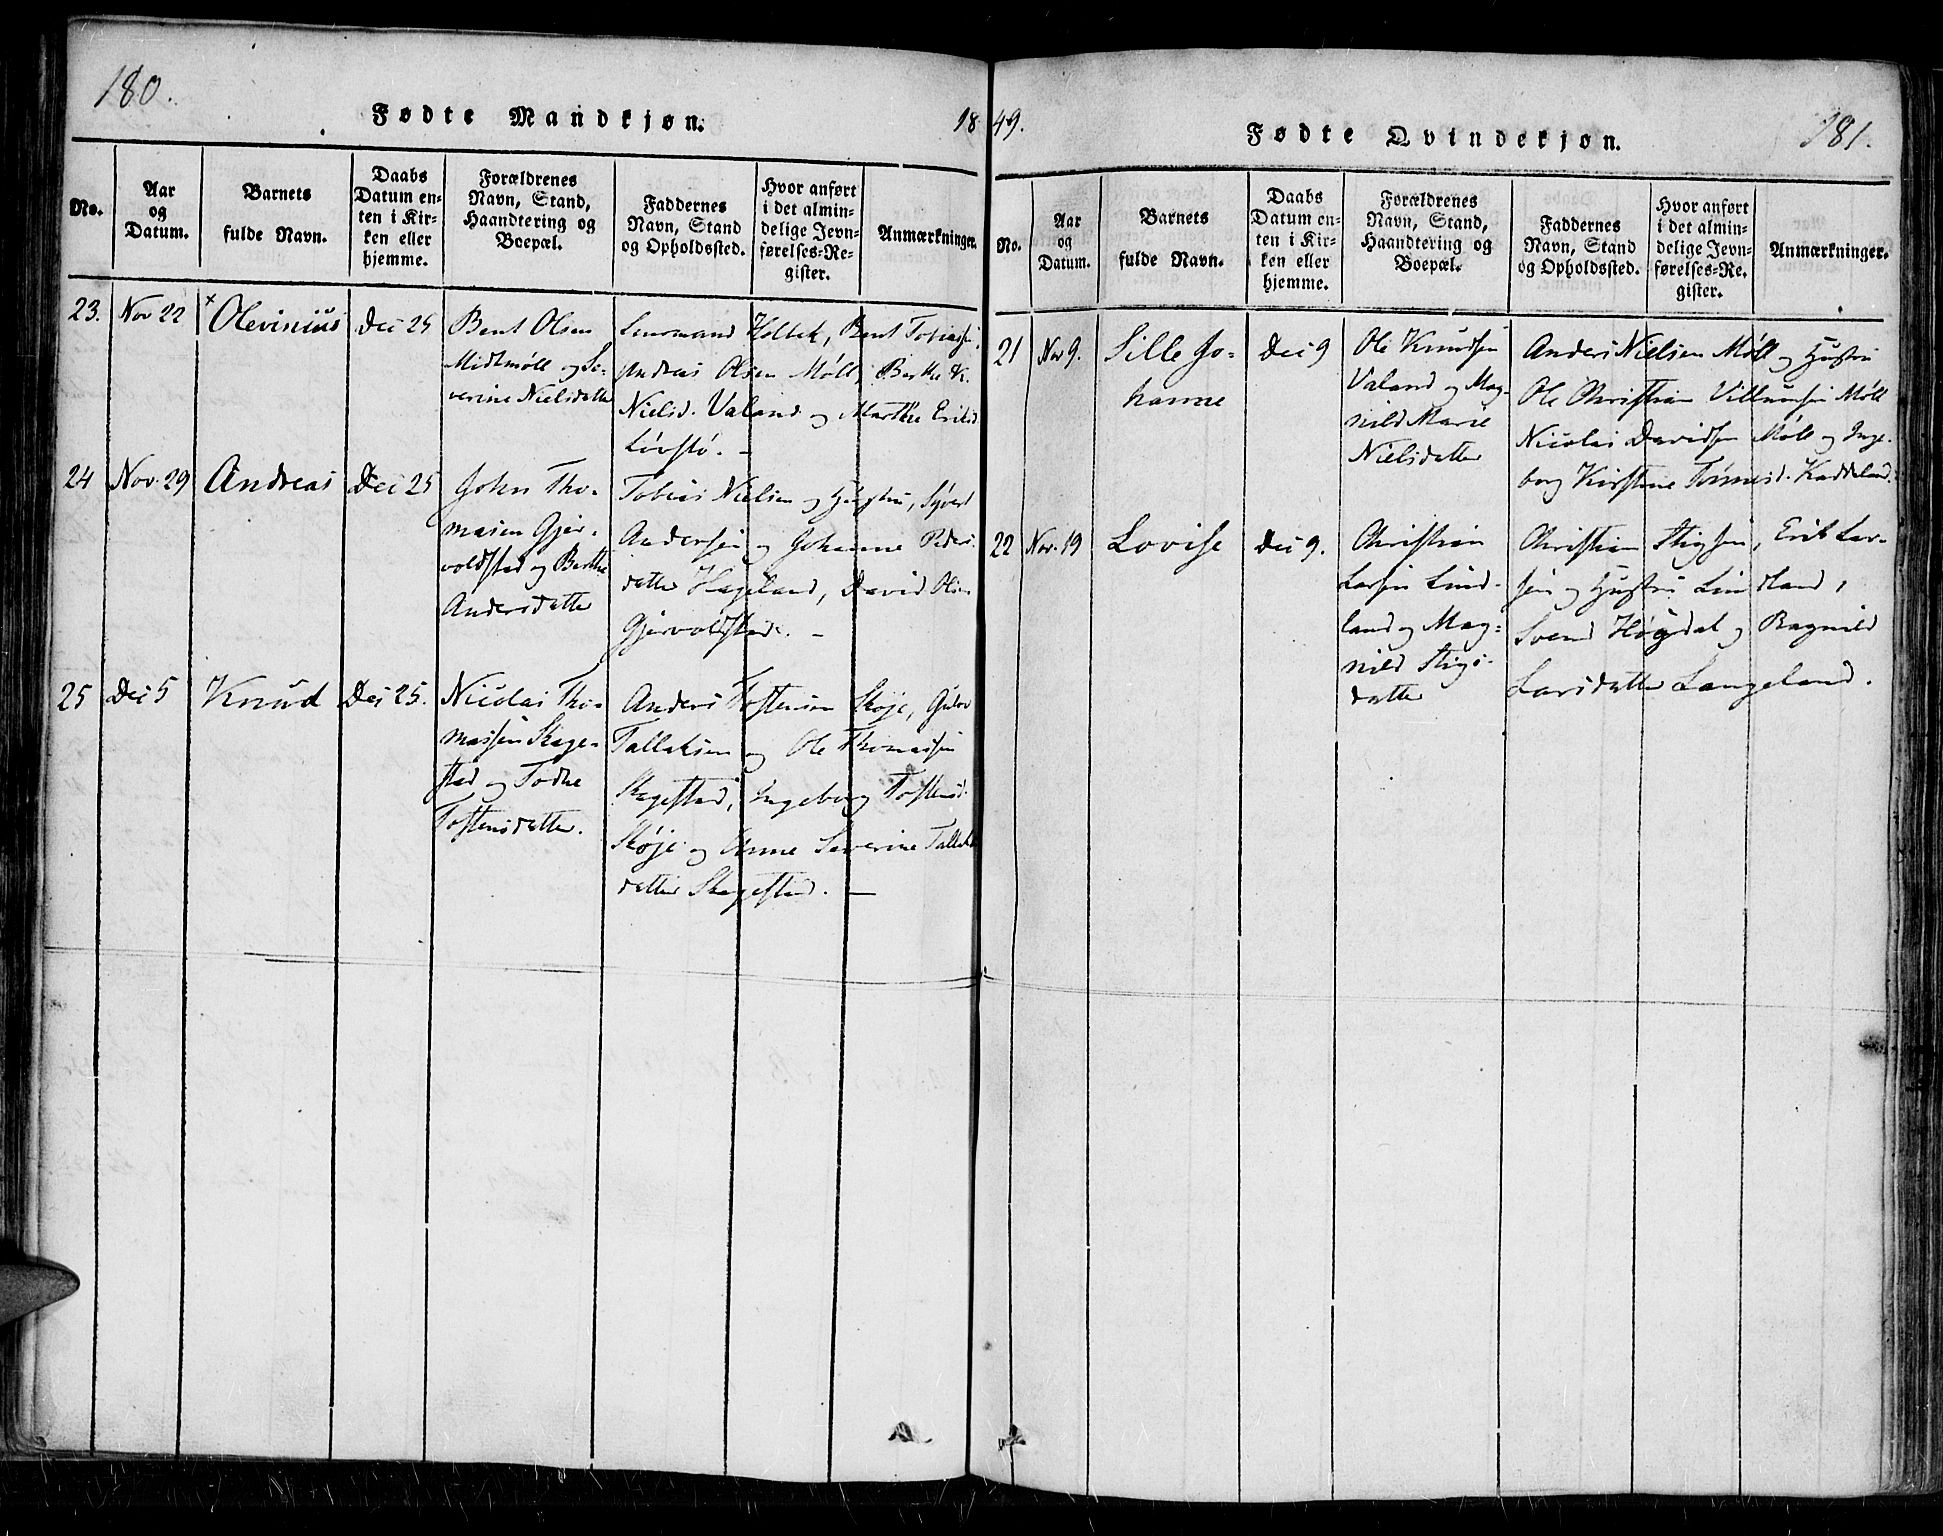 180.
Fødte Mandkjøn.
1849.
No.
Aar
og
Datum.
Barnets
fulde Navn.
Daabs
Datum en-
ten i Kir-
ken eller
hjemme.
Forældrenes
Navn, Stand,
Haandtering og
Boepæl.
Faddernes
Navn, Stand
og Opholdssted.
Hvor anført
i det almin-
delige Jevn-
førelses-Re-
gister.
Anmærkninger.
23.
Nov 22
× Olevinius
Dec 25
Bent Olsen
Midtmøll og Se-
verine Nielsdatter
Lensmand Holbek, Bent Tobiassen,
Andreas Olsen Møll, Berthe K.
Nielsd. Valand og Marthe Eriksd
Løvstø. -
24
Nov. 29
Andreas
Dec 25
John Tho-
masen Gjer-
voldstad og Berthe
Andersdatter
Tobias Nielsen og Hustru, Syvert
Andersen og Johanne Peders-
datter Hageland, David Olsen
Gjervoldstad. -
25
Dec 5
Knud
Dec 25.
Nicolai Tho-
massen Skage-
stad og Todne
Tostensdatter.
Anders Tostensen Skøje, Gulov
Tallaksen og Ole Thomassen
Skagestad, Ingeborg Tostensd.
Skøje og Anne Severine Tallaks
datter Skagestad. -
Fødte Qvindekjøn.
181.
No.
Aar
og
Datum.
Barnets
fulde Navn.
Daabs
Datum en-
ten i Kir-
ken eller
hjemme.
Forældrenes
Navn, Stand,
Haandtering og
Boepæl.
Faddernes
Navn, Stand
og Opholdssted.
Hvor anført
i det almin-
delige Jevn-
førelses-Re-
gister.
Anmærkninger.
21
Nov 9.
Sille Jo-
hanne
Dec 9
Ole Knudsen
Valand og Mag-
nild Marie
Nielsdatter
Anders Nielsen Møll og Hustru
Ole Christian Villumsen Møll
Nicolai Davidsen Møll og Inge-
borg Kirstine Tønnesd. Kaddeland.
22
Nov. 19
Lovise
Dec 9.
Christian
Larsen Lind-
land og Mag-
nild Stigs-
datter
Christian Stigsen, Erik Lar-
sen og Hustru Lindland,
Svend Høgdal og Ragnild
Larsdatter Langeland.